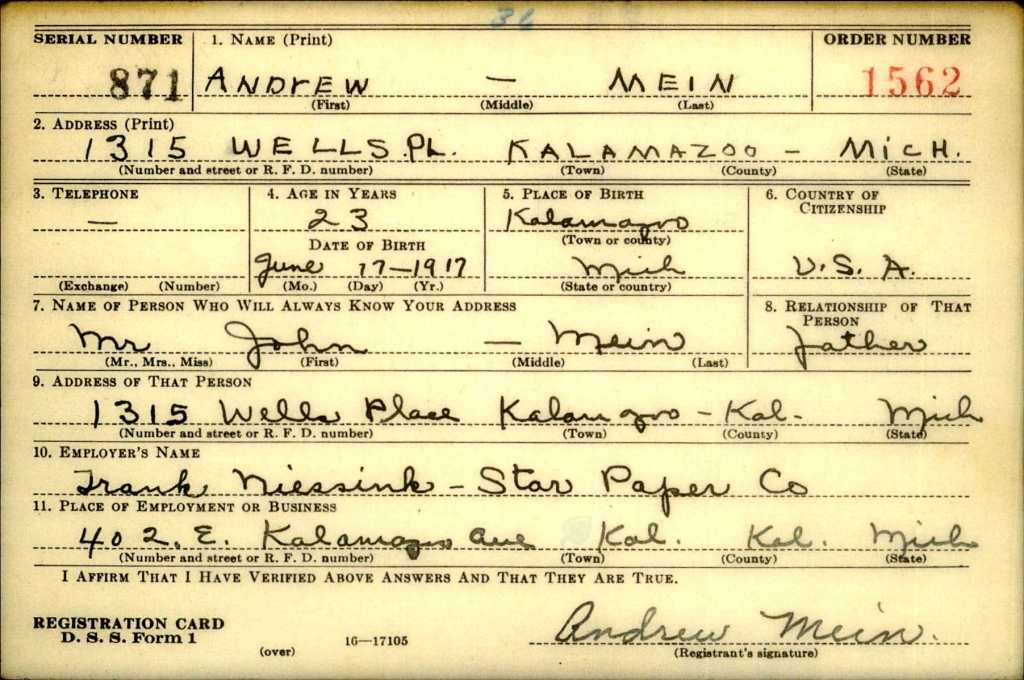 36
SERIAL NUMBER 1. NAME (Print) ORDER NUMBER
871 ANDREW — MEIN 1562
(First) (Middle) (Last)
2. ADDRESS (Print)
1315 WELLS PL. KALAMAZOO — MICH.
(Number and street or R. F. D. number) (Town) (County) (State)
3. TELEPHONE 4. AGE IN YEARS 5. PLACE OF BIRTH 6. COUNTRY OF
CITIZENSHIP
— 23 Kalamazoo
DATE OF BIRTH (Town or county)
June 17—1917 Mich U.S.A.
(Exchange) (Number) (Mo.) (Day) (Yr.) (State or country)
7. NAME OF PERSON WHO WILL ALWAYS KNOW YOUR ADDRESS 8. RELATIONSHIP OF THAT
PERSON
Mr John — Mein Father
(Mr., Mrs., Miss) (First) (Middle) (Last)
9. ADDRESS OF THAT PERSON
1315 Wells Place Kalamazoo - Kal- Mich
(Number and street or R. F. D. number) (Town) (County) (State)
10. EMPLOYER'S NAME
Frank Niessink - Star Paper Co
11. PLACE OF EMPLOYMENT OR BUSINESS
402. E. Kalamazoo ave Kal. Kal. Mich
(Number and street or R. F. D. number) (Town) (County) (State)
I AFFIRM THAT I HAVE VERIFIED ABOVE ANSWERS AND THAT THEY ARE TRUE.
REGISTRATION CARD
D. S. S. Form 1 16—17105 Andrew Mein.
(over) (Registrant's signature)